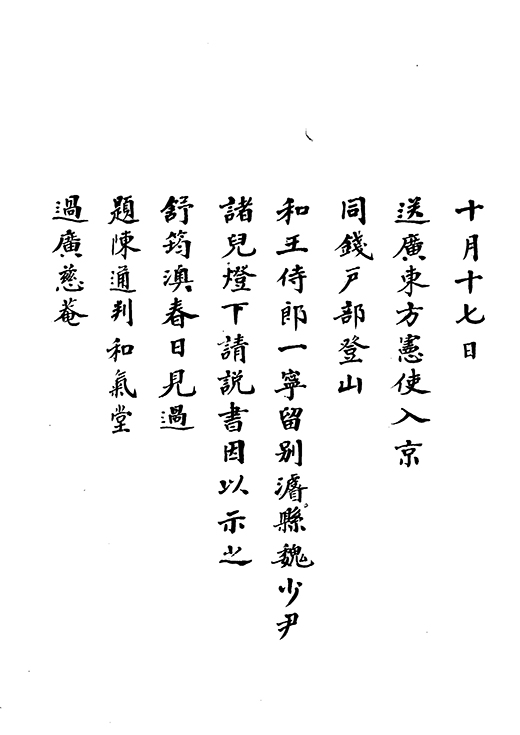 十月十七日
送廣東方憲使入京
同錢戸部登山
和王侍郎一寧留别濬縣魏少尹
諸兒燈下請説書因以示之
舒筠澳春日見過
題陳通判和氣堂
過廣慈菴